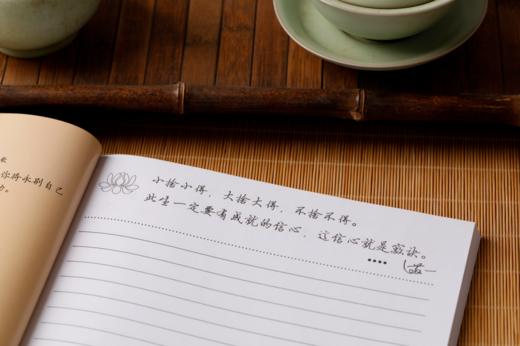 你将永别自己
小捨小得，大捨大得，不捨不得。
此生一定要有成就的信心，这信心就是窍诀。